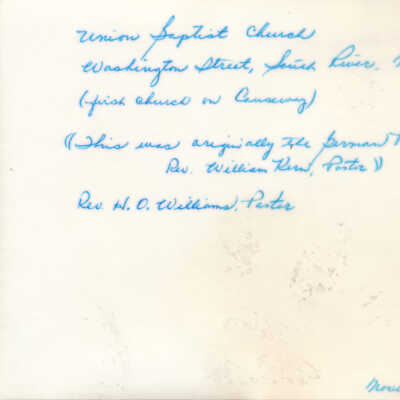 Union Baptist Church
Washington Street, South River,
(first church on Causeway)
((This was originally the German
Rev. William Kern, Pastor))
Rev. H. O. Williams, Pastor